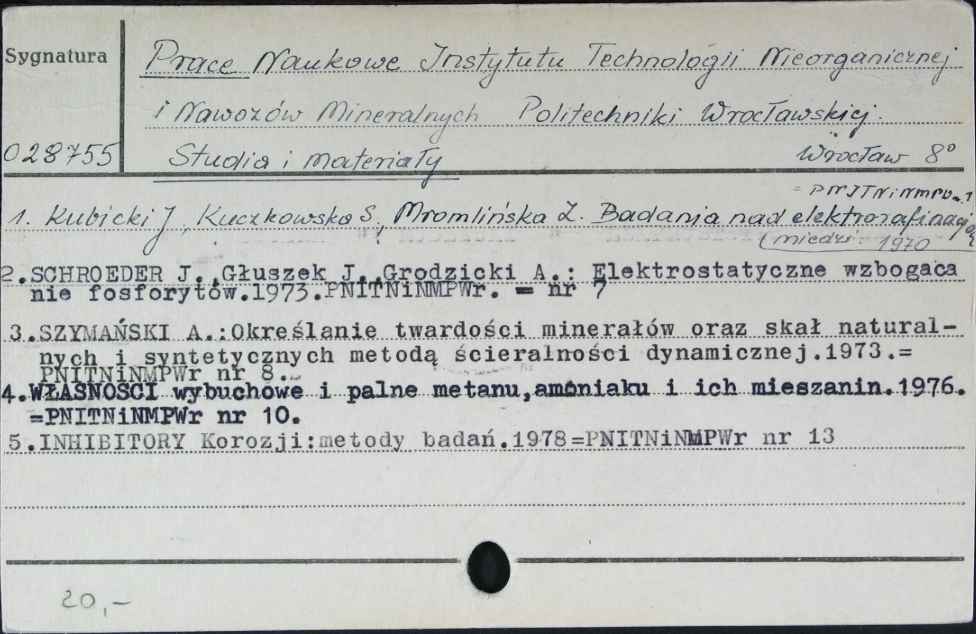 Sygnatura
Prace Naukowe Instytutu Technologii Nieorganicznej
i Nawozów Mineralnych Politechniki Wrocławskiej.
028755 Studia i materiały Wrocław 8°
= PNITNiNMPWr. 1
1. Kubicki J, Kuczkowska S, Mromlińska Z. Badania nad elektrorafinacją
(miedzi. 1970
2.SCHROEDER J.,Głuszek J.,Grodzicki A.: Elektrostatyczne wzbogaca
nie fosforytów.1973.PNITNiNMPWr. = nr 7
3.SZYMAŃSKI A.:Określanie twardości minerałów oraz skał natural-
nych i syntetycznych metodą ścieralności dynamicznej.1973.=
PNITNiNMPWr nr 8.
4.WŁASNOSCI wybuchowe i palne metanu,amoniaku i ich mieszanin.1976.
=PNITNiNMPWr nr 10.
5.INHIBITORY Korozji:metody badań.1978=PNITNiNMPWr nr 13
20,-